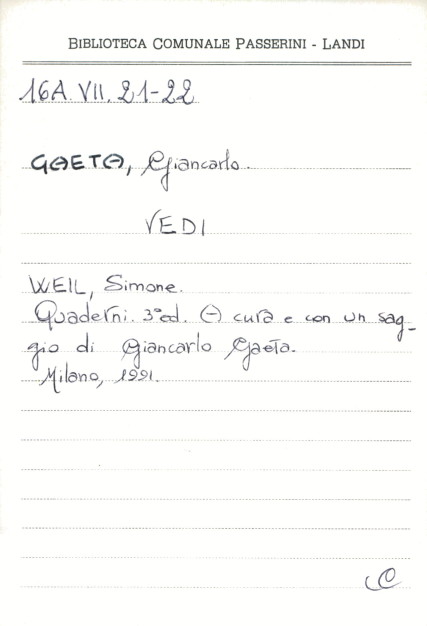 BIBLIOTECA COMUNALE PASSERINI - LANDI
16A. VII. 21-22
GAETA, Giancarlo.
VEDI
WEIL, Simone.
Quaderni. 3°ed. A cura e con un sag-
gio di Giancarlo Gaeta.
Milano, 1991.